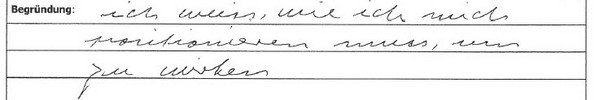 Begründung: ich weiss, wie ich mich
positionieren muss, um
zu wirken